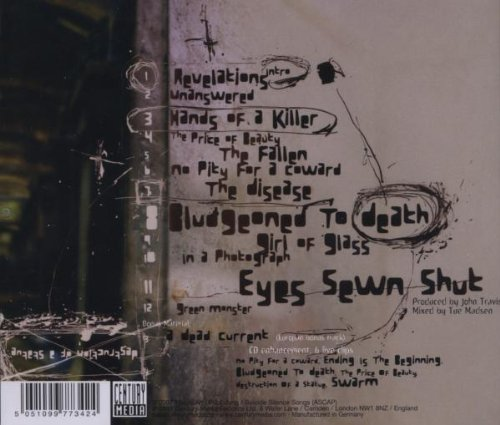 1 Revelations intro
2 unanswered
3 Hands of a Killer
4 The Price of Beauty
5 The Fallen
6 no Pity for a coward
7 The disease
8 Bludgeoned To death
9 girl of glass
10 in a Photograph
11 Eyes Sewn Shut
Produced by John Travis
Mixed by Tue Madsen
12 green monster
Bonus Material
a dead current (Europe bonus track)
CD enhancement, 6 live clips
no Pity for a coward, Ending is The Beginning,
Bludgeoned To death, The Price of Beauty
destruction of a statue, Swarm
destruction of a statue
Publishing / Suicide Silence Songs (ASCAP)
Century Media Records Ltd. 6 Water Lane / Camden / London NW1 8NZ / England
Manufactured in Germany
CENTURY MEDIA
5 051099 773424